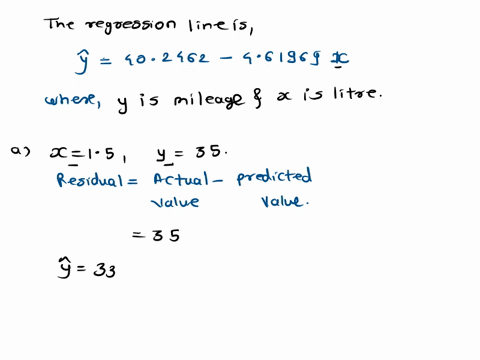 The regression line is,
ŷ = 40.2462 - 4.61969 x
where, y is mileage & x is litre.
a) x = 1.5, y = 35.
Residual = Actual - predicted
value value.
= 35
ŷ = 33